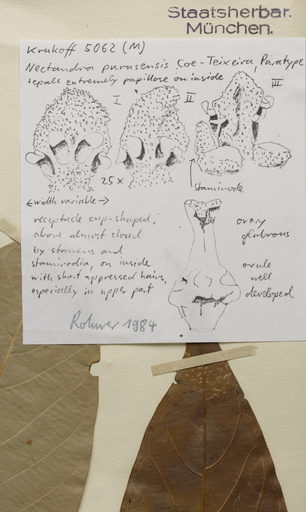 Staatsherbar.
München.
Krukoff 5062 (M)
Nectandra purusensis Coe-Teixeira, Paratype
tepals extremely papillose on inside
I
II
III
25x
Staminode
← width variable →
receptacle cup-shaped,
above almost closed
by stamens and
staminodia, on inside
with short appressed hairs,
especially in upper part
ovary
glabrous
ovule
well
developed
Rohwer 1984